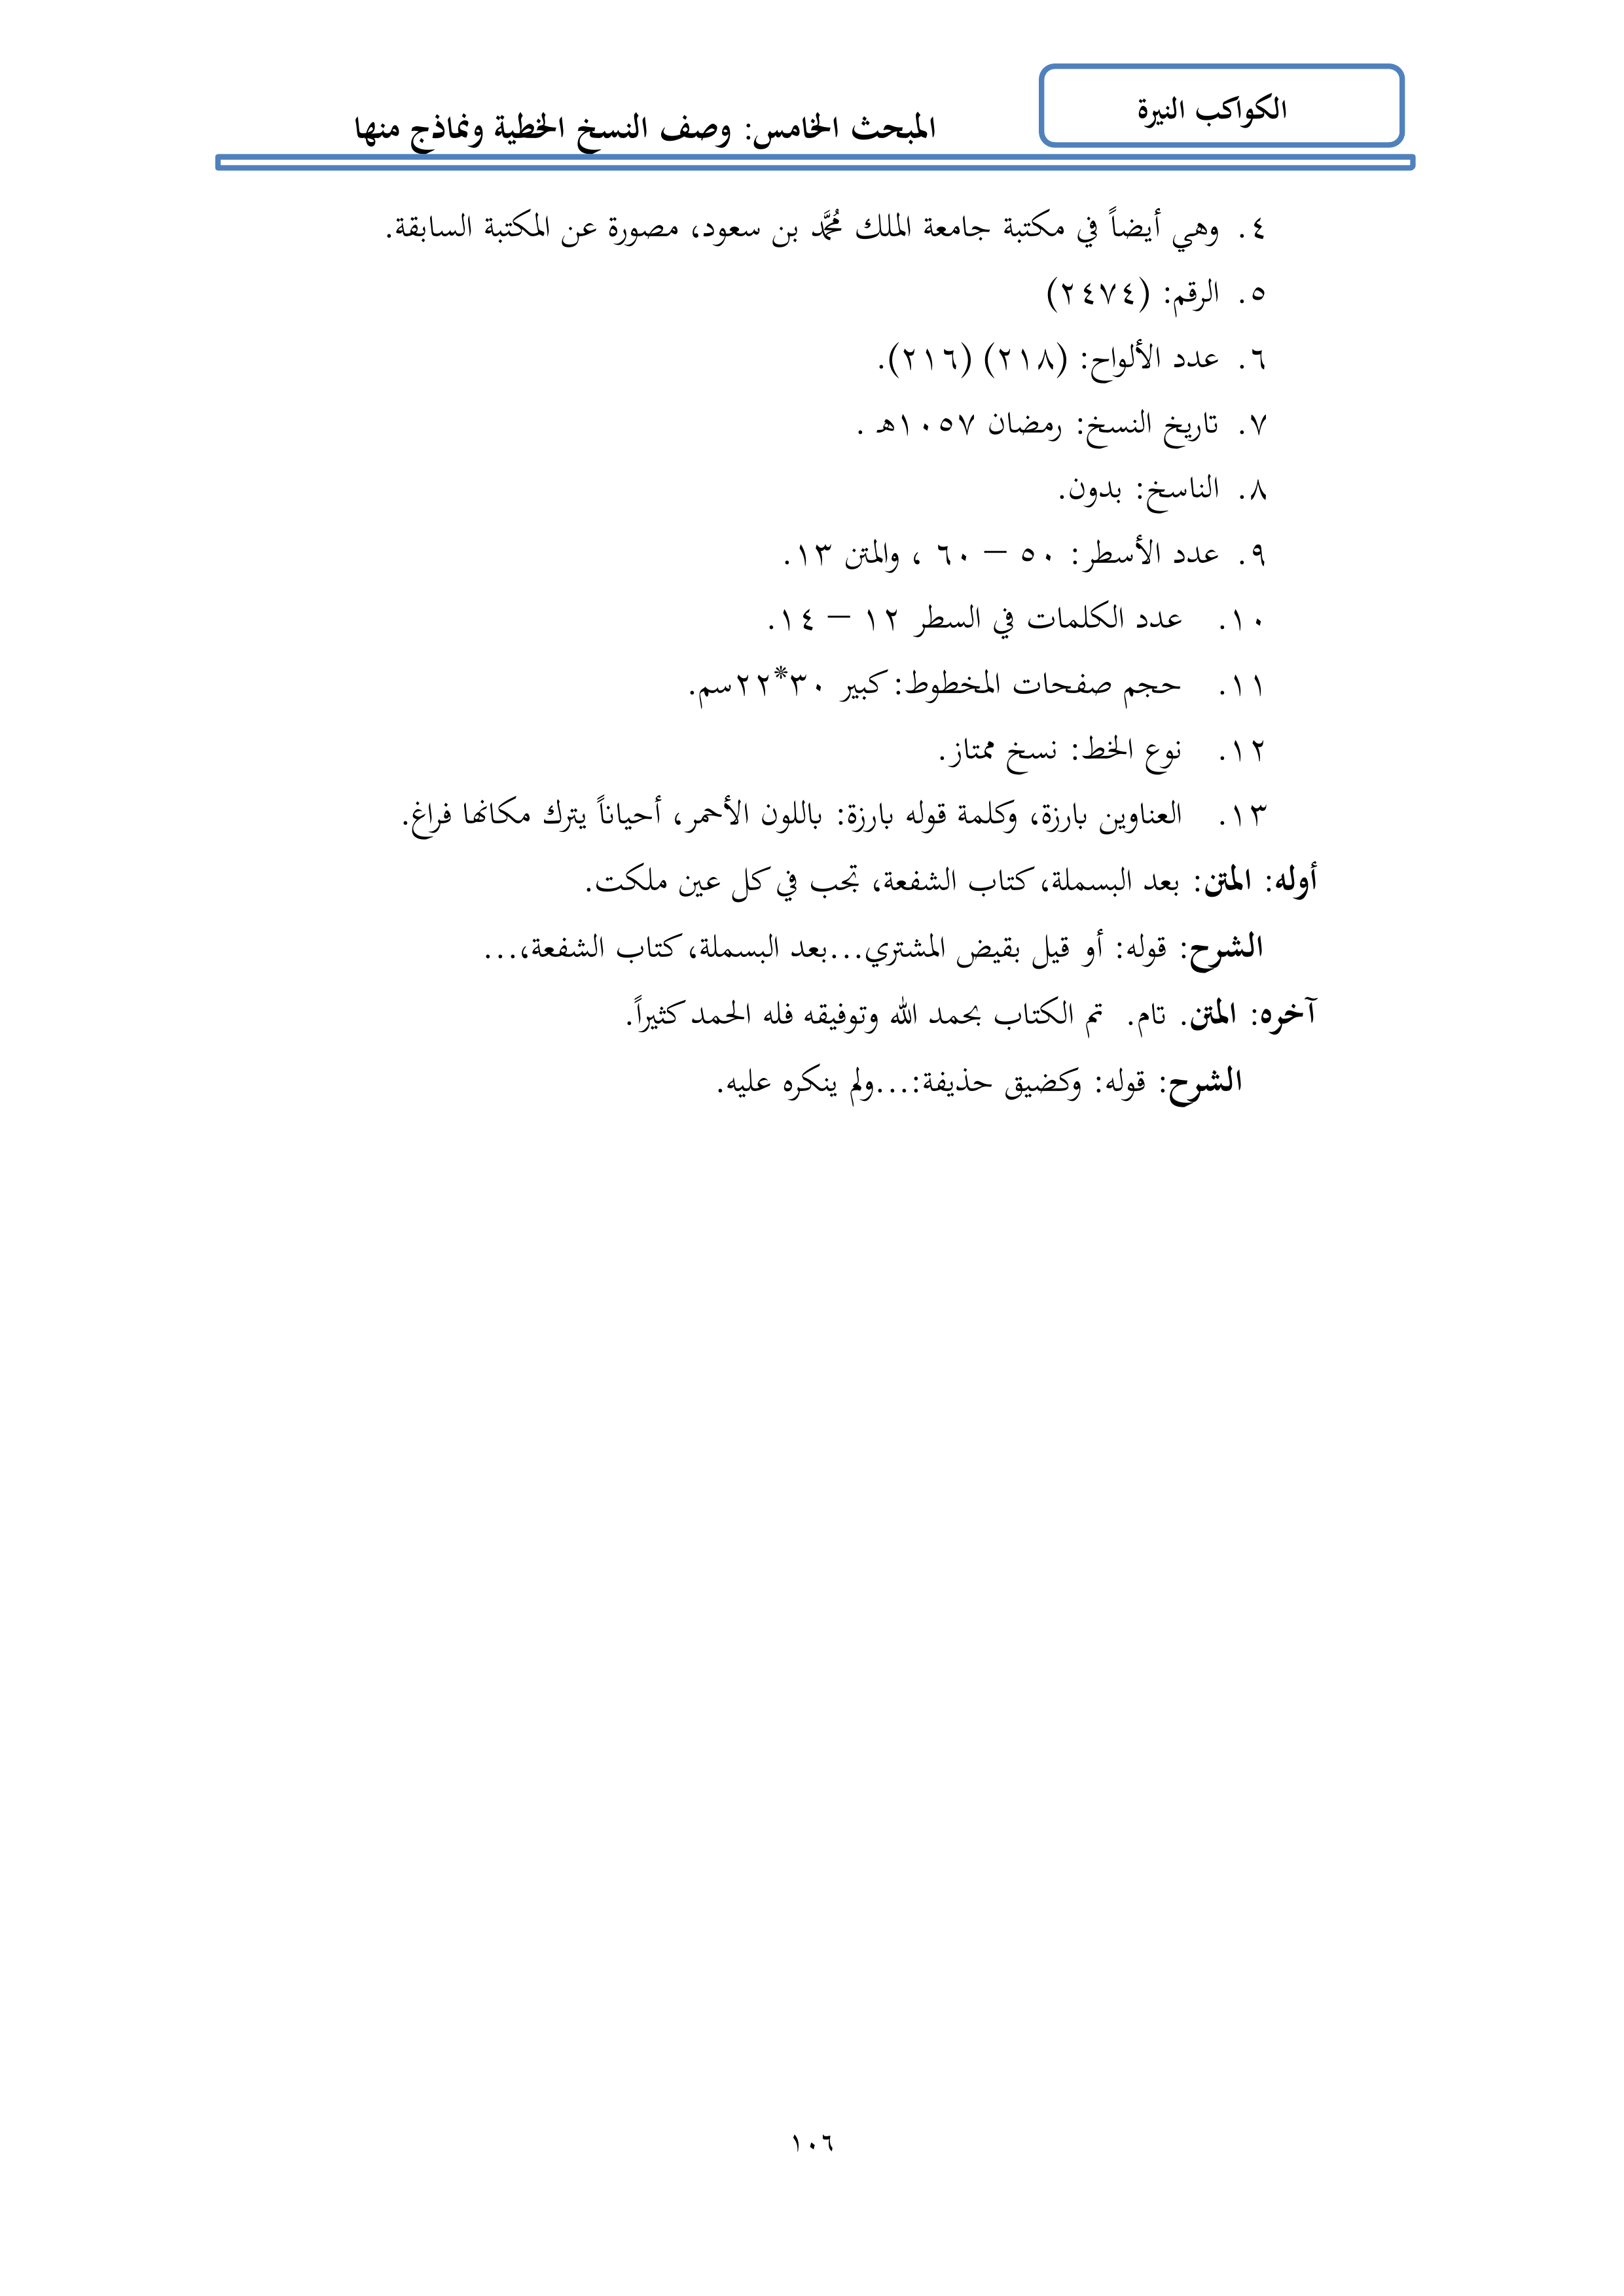 الكواكب النيرة
المبحث الخامس: وصف النسخ الخطية ونماذج منها
٤. وهي أيضاً في مكتبة جامعة الملك مُحمَّد بن سعود، مصورة عن المكتبة السابقة.
٥. الرقم: (٢٤٧٤)
٦. عدد الألواح: (٢١٨) (٢١٦).
٧. تاريخ النسخ: رمضان ١٠٥٧هـ .
٨. الناسخ: بدون.
٩. عدد الأسطر: ٥٠ – ٦٠ ، والمتن ١٣.
١٠. عدد الكلمات في السطر ١٢ – ١٤.
١١. حجم صفحات المخطوط: كبير ٣٠*٢٢سم.
١٢. نوع الخط: نسخ ممتاز.
١٣. العناوين بارزة، وكلمة قوله بارزة: باللون الأحمر، أحياناً يترك مكانها فراغ.
أوله: المتن: بعد البسملة، كتاب الشفعة، تجب في كل عين ملكت.
الشرح: قوله: أو قيل بقيض المشتري...بعد البسملة، كتاب الشفعة،...
آخره: المتن. تام. تم الكتاب بحمد الله وتوفيقه فله الحمد كثيراً.
الشرح: قوله: وكضيق حذيفة:...ولم ينكره عليه.
١٠٦